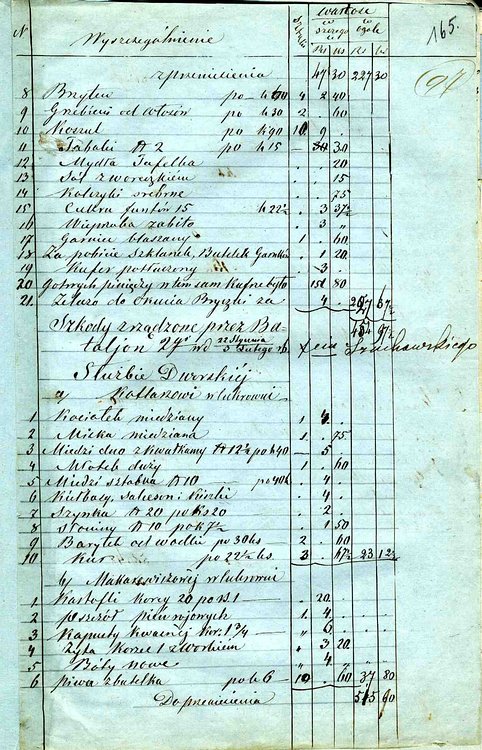 165.
97
N Wyszczególnienie Sztuki wartość
w szczególe w ogóle
Rs ks Rs ks
z przeniesienia 47 30 227 30
8 Brytew po k 60 4 2 40
9 Grzebieni od włosów po k 30 2 . 60
10 Koszul po k 90 10 9 .
11 Tabaki ℔ 2 po k 15 — . 30
12 Mydła Tafelka . 20
13 Sól z woreczkiem . 15
14 Kolczyki srebrne . 75
15 Cukru funtów 15 k 22½ . 3 37½
16 Wieprzaka zabito . 3 „
17 Garniec blaszany 1 . 60
18 Za pobicie szklanek, Butelek Garnków . 1 20
19 Kufer potłuczony . 3 .
20 Gotowych pieniędzy w tem sam kufrze było 151 80
21. Żelazo do okucia Bryczki za . 4 .
Szkody zrządzone przez Ba-
taljon 2go nd 22 Stycznia 3 Lutego rb.
Służbie Dworskiéj
a/ w Lubrowni
1 Kociołek miedziany 1 4 .
2 Miska miedziana 1 . 75
3 Miedzi dno z kwatkamy ℔ 12½ po k 40 — 5 .
4 Młotek duży 1 . 60
5 Miedzi sztabka ℔ 10 — po 40 k . 4 .
6 Kiełbasy, Salceson i Kiszki . 4 .
7 Szynka ℔ 20 po ks 20 . 2 .
8 Słoniny ℔ 10 po k 7½ . 1 50
9 Baryłek od wódki po 30 ks 2 . 60
10 Kur po 22½ ks 3 . 67½ 23 12½
b/ w Lubrowni
1 Kartofli korcy 20 po R. 1 — . 20 .
2 pszczół pieńi 1 4 .
3 Kapusty kwaśnéj kor. 1¾ — „ 6 .
4 Żyta korzec 1 z workiem . 3 20
5 Bóty nowe „ 4 „
6 piwa z butelką po k 6 — 10 . 60 37 80
Do przeniesienia 515 90